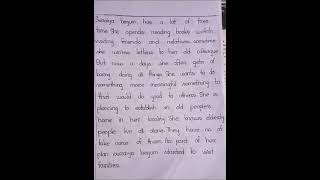 Suraiya begum has a lot of free
time. She spends reading books
visiting friends and relatives. sometimes
she writes letters to her old colleague
But now a days she often gets of
being doing all things. She wants to do
something more meaningful something to
that would do good to others. She is
planning to establish an old peoples
home in her locality. She knows elderly
people live all alone. They have no of
take care of them. As part of her
plan suraiya begum started to visit
families.